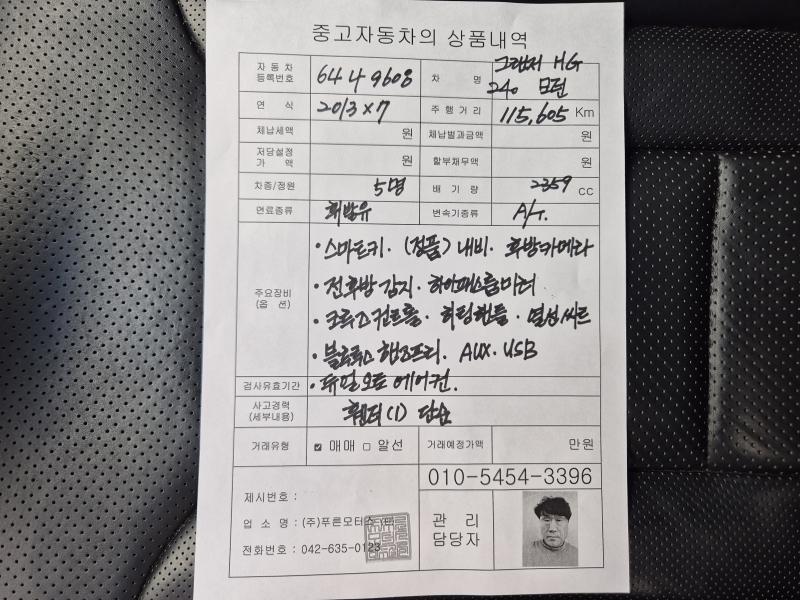 중고자동차의 상품내역
자동차
등록번호
64나9608
차 명
그랜저 HG
240 모던
연 식
2013×7
주행거리
115,605 Km
체납세액
원
체납벌과금액
원
저당설정
가 액
원
할부채무액
원
차종/정원
5명
배 기 량
2359 cc
연료종류
휘발유
변속기종류
A/T.
주요장비
(옵 션)
·스마트키. (정품)내비. 후방카메라
·전후방 감지. 하이패스룸미러
·크루즈컨트롤. 히팅핸들. 열선씨트
·블루투스 핸즈프리. AUX. USB
검사유효기간
·듀얼오토 에어컨.
사고경력
(세부내용)
휀더(1) 단순
거래유형
☑ 매매 □ 알선
거래예정가액
만원
010-5454-3396
제시번호 :
업 소 명 : (주)푸른모터스
전화번호 : 042-635-0123
관 리
담당자